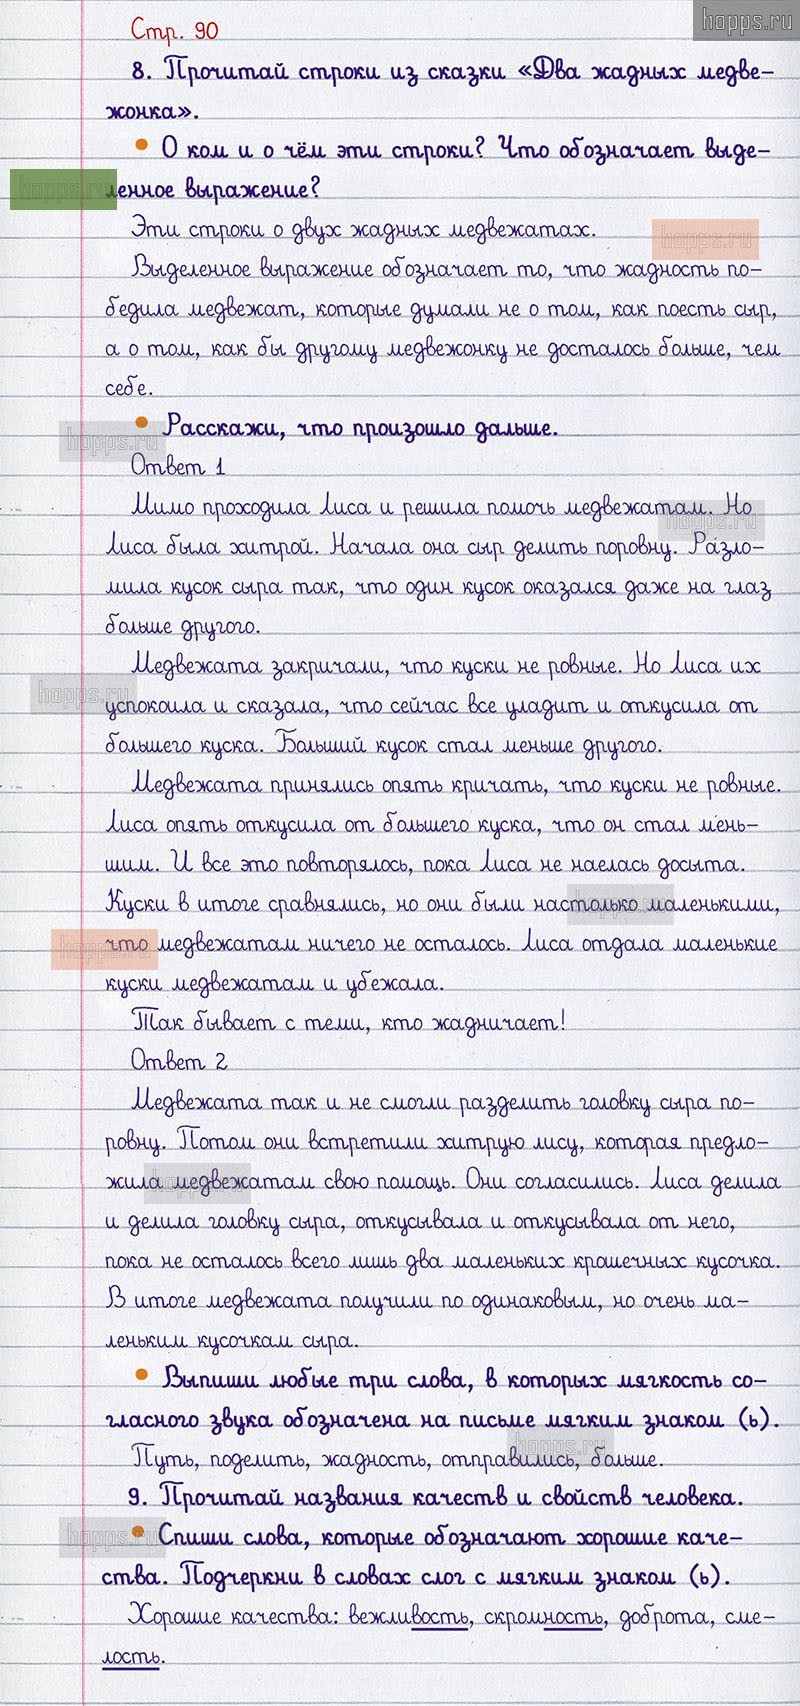 hopps.ru
Стр. 90
8. Прочитай строки из сказки «Два жадных медве-
жонка».
О ком и о чём эти строки? Что обозначает выде-
ленное выражение?
hopps.ru
Эти строки о двух жадных медвежатах.
hopps.ru
Выделенное выражение обозначает то, что жадность по-
бедила медвежат, которые думали не о том, как поесть сыр,
а о том, как бы другому медвежонку не досталось больше, чем
себе.
Расскажи, что произошло дальше.
hopps.ru
Ответ 1
Мимо проходила Лиса и решила помочь медвежатам. Но
hopps.ru
Лиса была хитрой. Начала она сыр делить поровну. Разло-
мила кусок сыра так, что один кусок оказался даже на глаз
больше другого.
Медвежата закричали, что куски не ровные. Но Лиса их
hopps.ru
успокоила и сказала, что сейчас все уладит и откусила от
большего куска. Больший кусок стал меньше другого.
Медвежата принялись опять кричать, что куски не ровные.
Лиса опять откусила от большего куска, что он стал мень-
шим. И все это повторялось, пока Лиса не наелась досыта.
Куски в итоге сравнялись, но они были настолько маленькими,
hopps.ru
что медвежатам ничего не осталось. Лиса отдала маленькие
hopps.ru
куски медвежатам и убежала.
Так бывает с теми, кто жадничает!
Ответ 2
Медвежата так и не смогли разделить головку сыра по-
ровну. Потом они встретили хитрую лису, которая предло-
жила медвежатам свою помощь. Они согласились. Лиса делила
hopps.ru
и делила головку сыра, откусывала и откусывала от него,
пока не осталось всего лишь два маленьких крошечных кусочка.
В итоге медвежата получили по одинаковым, но очень ма-
леньким кусочкам сыра.
Выпиши любые три слова, в которых мягкость со-
гласного звука обозначена на письме мягким знаком (ь).
hopps.ru
Путь, поделить, жадность, отправились, больше.
9. Прочитай названия качеств и свойств человека.
Спиши слова, которые обозначают хорошие каче-
hopps.ru
ства. Подчеркни в словах слог с мягким знаком (ь).
Хорошие качества: вежливость, скромность, доброта, сме-
лость.